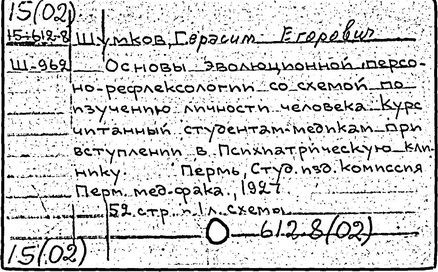 15(02)
15-612-8 Шумков, Герасим Егорович
Ш-962 Основы эволюционной персо-
но-рефлексологии со схемой по
изучению личности человека Курс
читанный студентам-медикам при
вступлении в Психиатрическую кли-
нику Пермь, Студ. изд. комиссия
Перм. мед. фака, 1927
52 стр. п. 1 л. схемы
612.8(02)
15(02)